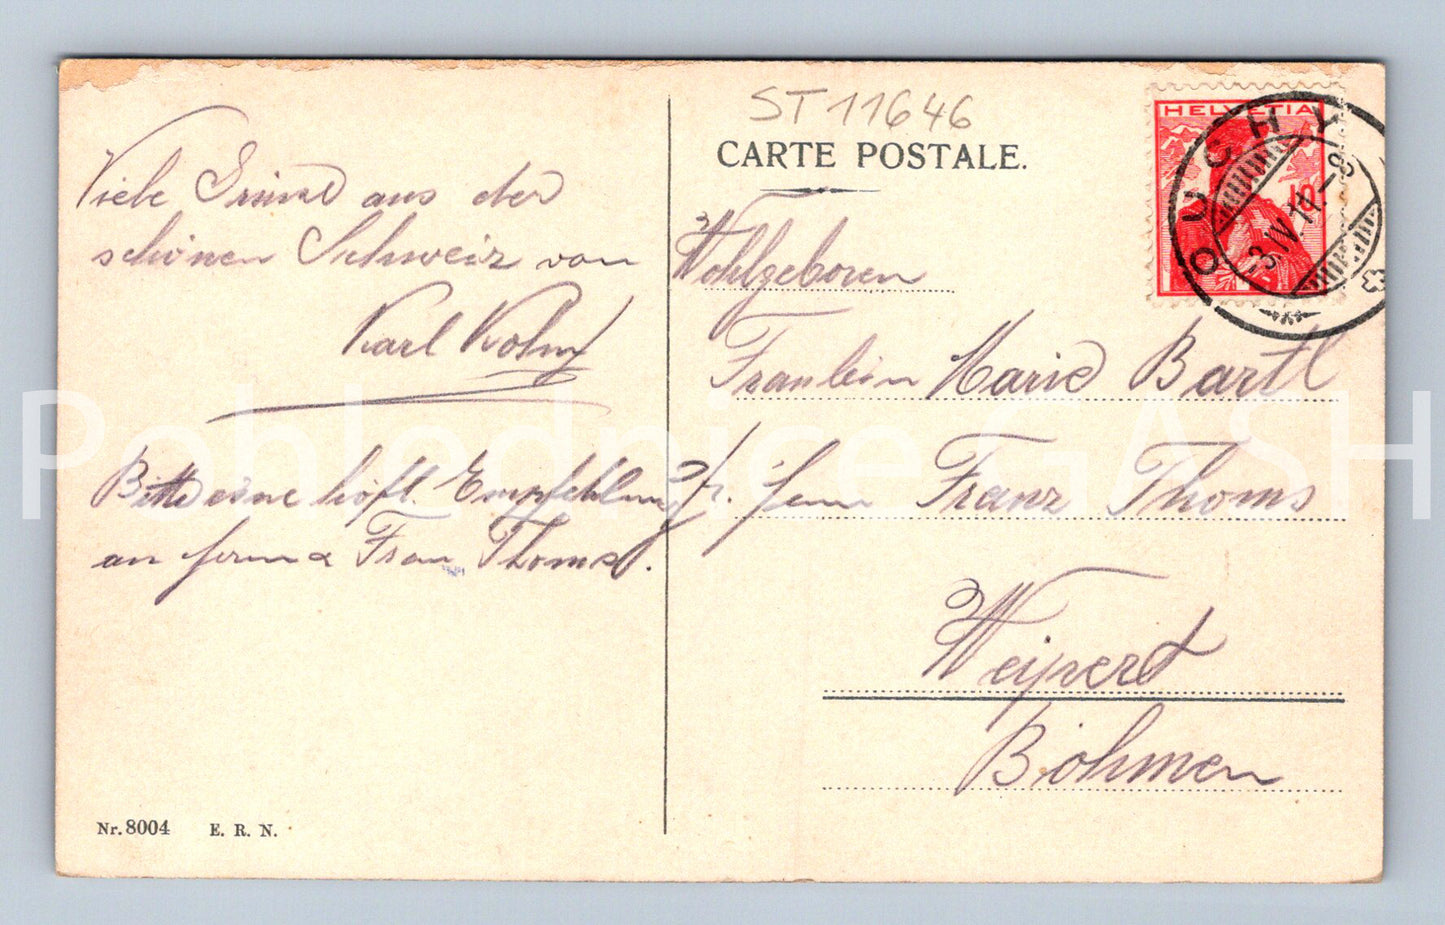 ST 11646
CARTE POSTALE.
HELVETIA
10
OUCHY
3.IV.11.-8
Viele Grüsse aus der
schönen Schweiz von
Karl
Bitte eine höfl. Empfehlung
an Herrn & Frau Thoms.
Wohlgeboren
Fräulein Marie Bartl
Herrn Franz Thoms
Weipert
Böhmen
Nr. 8004 E. R. N.
Pohlednice GASH